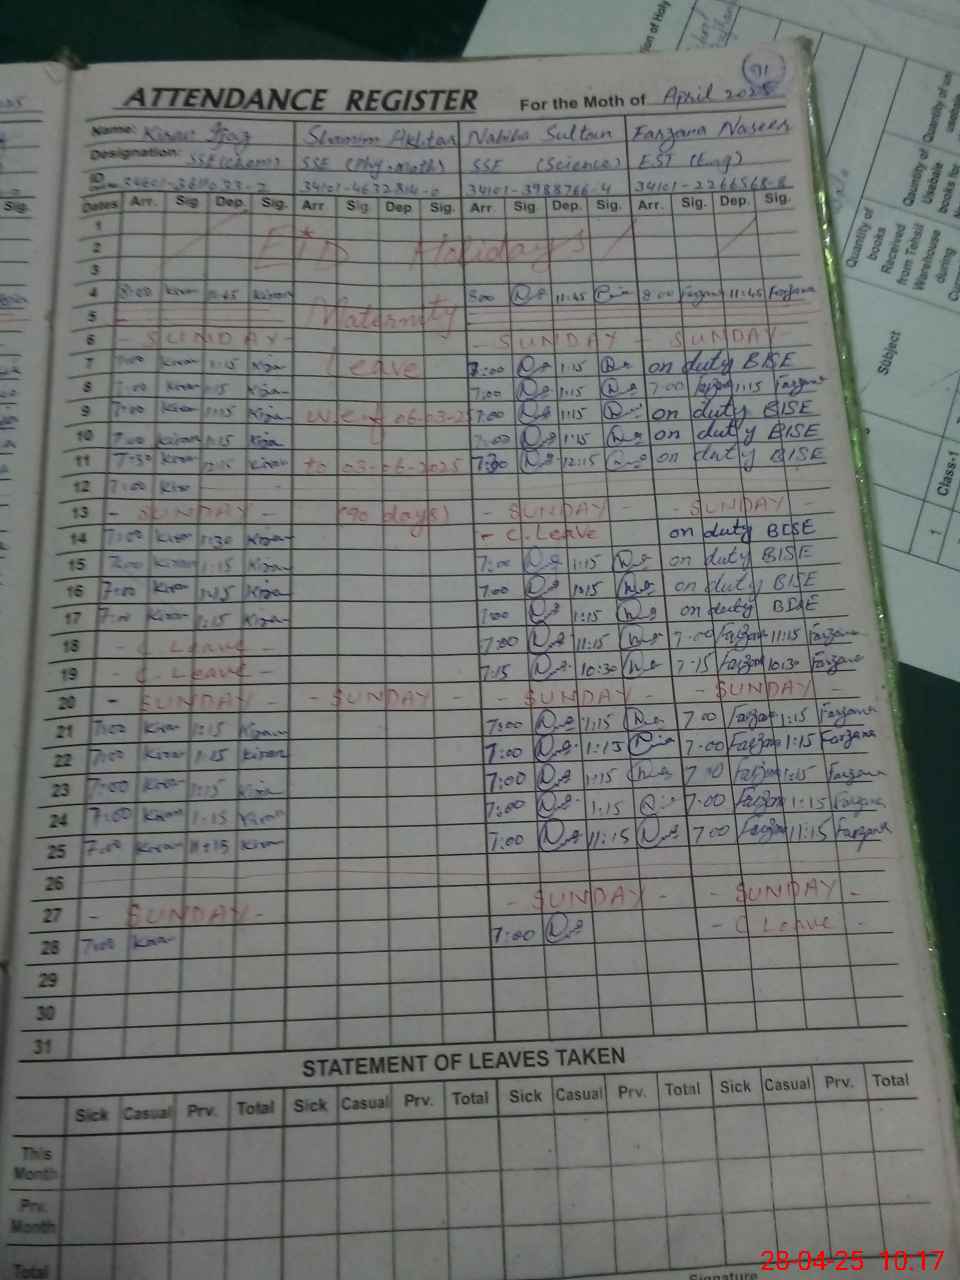 91
ATTENDANCE REGISTER For the Moth of April 2025
Name: Kiran Ijaz Shamim Akhtar Nabiha Sultan Farzana Naseer
Designation: SSE (chem) SSE (Phy-math) SSE (Science) EST (Eng)
ID 34101-4632814-0 34101-3988766-4 34101-2266568-8
Dates Arr. Sig Dep. Sig. Arr Sig. Dep. Sig. Arr. Sig Dep. Sig. Arr. Sig. Dep. Sig.
1
2 EID Holidays
3
4 8:00 Kiran 11:45 Kiran 8:00 11:45 8:00 Farzana 11:45 Farzana
5 Maternity
6 - SUNDAY - - SUNDAY - SUNDAY -
7 7:00 Kiran 1:15 Kiran Leave 7:00 1:15 on duty BISE
8 7:00 Kiran 1:15 Kiran 7:00 1:15 7:00 Farzana 1:15 Farzana
9 7:00 Kiran 1:15 Kiran w.e.f 06-03-25 7:00 1:15 on duty BISE
10 7:00 Kiran 1:15 Kiran 7:00 1:15 on duty BISE
11 7:30 Kiran 12:15 Kiran to 03-06-2025 7:30 12:15 on duty BISE
12 7:00
13 - SUNDAY - (90 days) - SUNDAY - - SUNDAY -
14 7:00 Kiran 1:30 Kiran - C. Leave on duty BISE
15 7:00 Kiran 1:15 Kiran 7:00 1:15 on duty BISE
16 7:00 Kiran 1:15 Kiran 7:00 1:15 on duty BISE
17 7:00 Kiran 1:15 Kiran 7:00 1:15 on duty BISE
18 - C. Leave - 7:00 11:15 7:00 Farzana 11:15 Farzana
19 - C. Leave - 7:15 10:30 7:15 Farzana 10:30 Farzana
20 - SUNDAY - - SUNDAY - - SUNDAY - - SUNDAY -
21 7:00 Kiran 1:15 Kiran 7:00 1:15 7:00 Farzana 1:15 Farzana
22 7:00 Kiran 1:15 Kiran 7:00 1:15 7:00 Farzana 1:15 Farzana
23 7:00 Kiran 1:15 Kiran 7:00 1:15 7:00 Farzana 1:15 Farzana
24 7:00 Kiran 1:15 Kiran 7:00 1:15 7:00 Farzana 1:15 Farzana
25 7:00 Kiran 11:15 Kiran 7:00 11:15 7:00 Farzana 11:15 Farzana
26
27 - SUNDAY - - SUNDAY - - SUNDAY -
28 7:00 Kiran 7:00 - C Leave -
29
30
31
STATEMENT OF LEAVES TAKEN
Sick Casual Prv. Total Sick Casual Prv. Total Sick Casual Prv. Total Sick Casual Prv. Total
This Month
Prv. Month
Total
Signature
tion of Holy
Quantity of books Received from Tehsil Warehouse during
Quantity of Usable books for
Quantity of
Subject
Class-1
1
Sig.
28-04-25 10.17